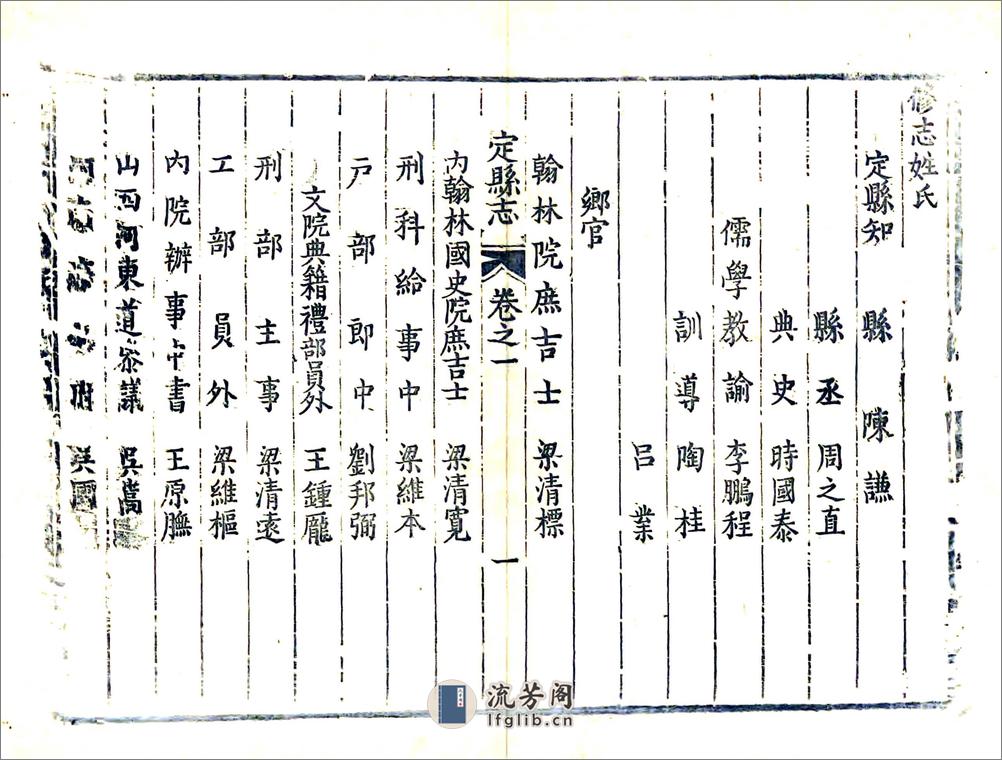 修志姓氏
定縣知縣 陳謙
縣丞 周之直
典史 時國泰
儒學教諭 李鵬程
訓導 陶桂
呂業
鄉官
翰林院庶吉士 梁清標
定縣志 卷之一 一
內翰林國史院庶吉士 梁清寬
刑科給事中 梁維本
戶部郎中 劉邦弼
文院典籍禮部員外 王鍾龐
刑部主事 梁清遠
工部員外 梁維樞
內院辦事中書 王原膴
山西河東道叅議 吳嵩
國
流芳阁
lfglib.cn